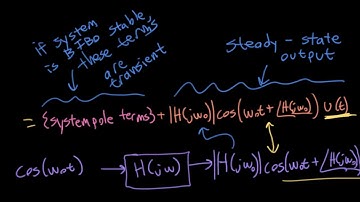 if system
is BIBO stable,
these terms
are
transient
steady-state
output
= {system pole terms} + |H(jω₀)| cos(ω₀t + ∠H(jω₀)) u(t)
cos(ω₀t) → H(jω) → |H(jω₀)| cos(ω₀t + ∠H(jω₀))